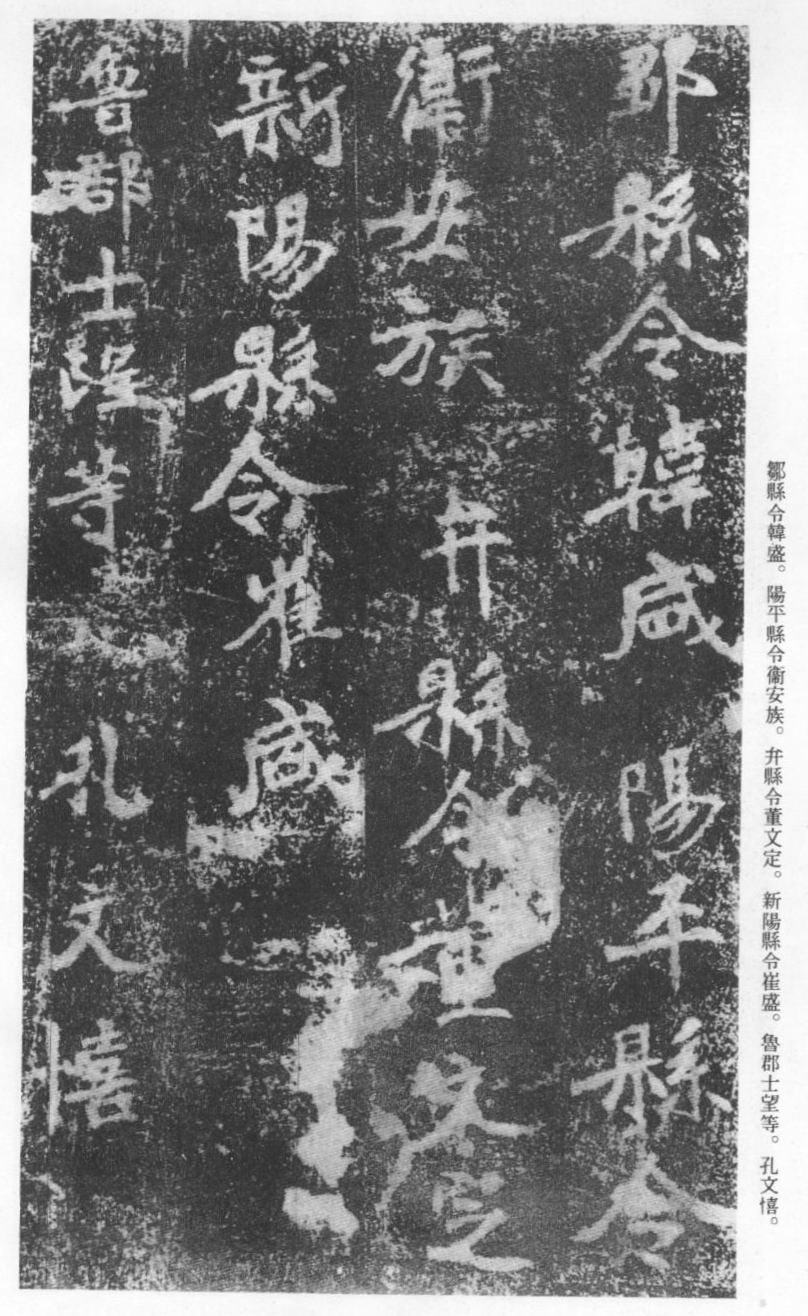 鄒縣令韓盛。陽平縣令衞安族。弁縣令董文定。新陽縣令崔盛。魯郡士望等。孔文憘。
鄒縣令韓盛 陽平縣令
衞安族 弁縣令董文定
新陽縣令崔盛
魯郡士望等 孔文憘